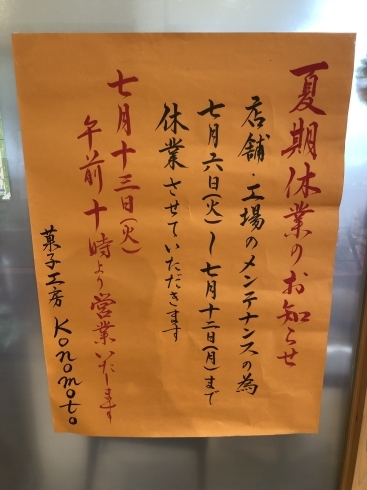 夏期休業のお知らせ
店舗・工場のメンテナンスの為
七月六日(火)〜七月十二日(月)まで
休業させていただきます
七月十三日(火)
午前十時より営業いたします
菓子工房 Konomoto